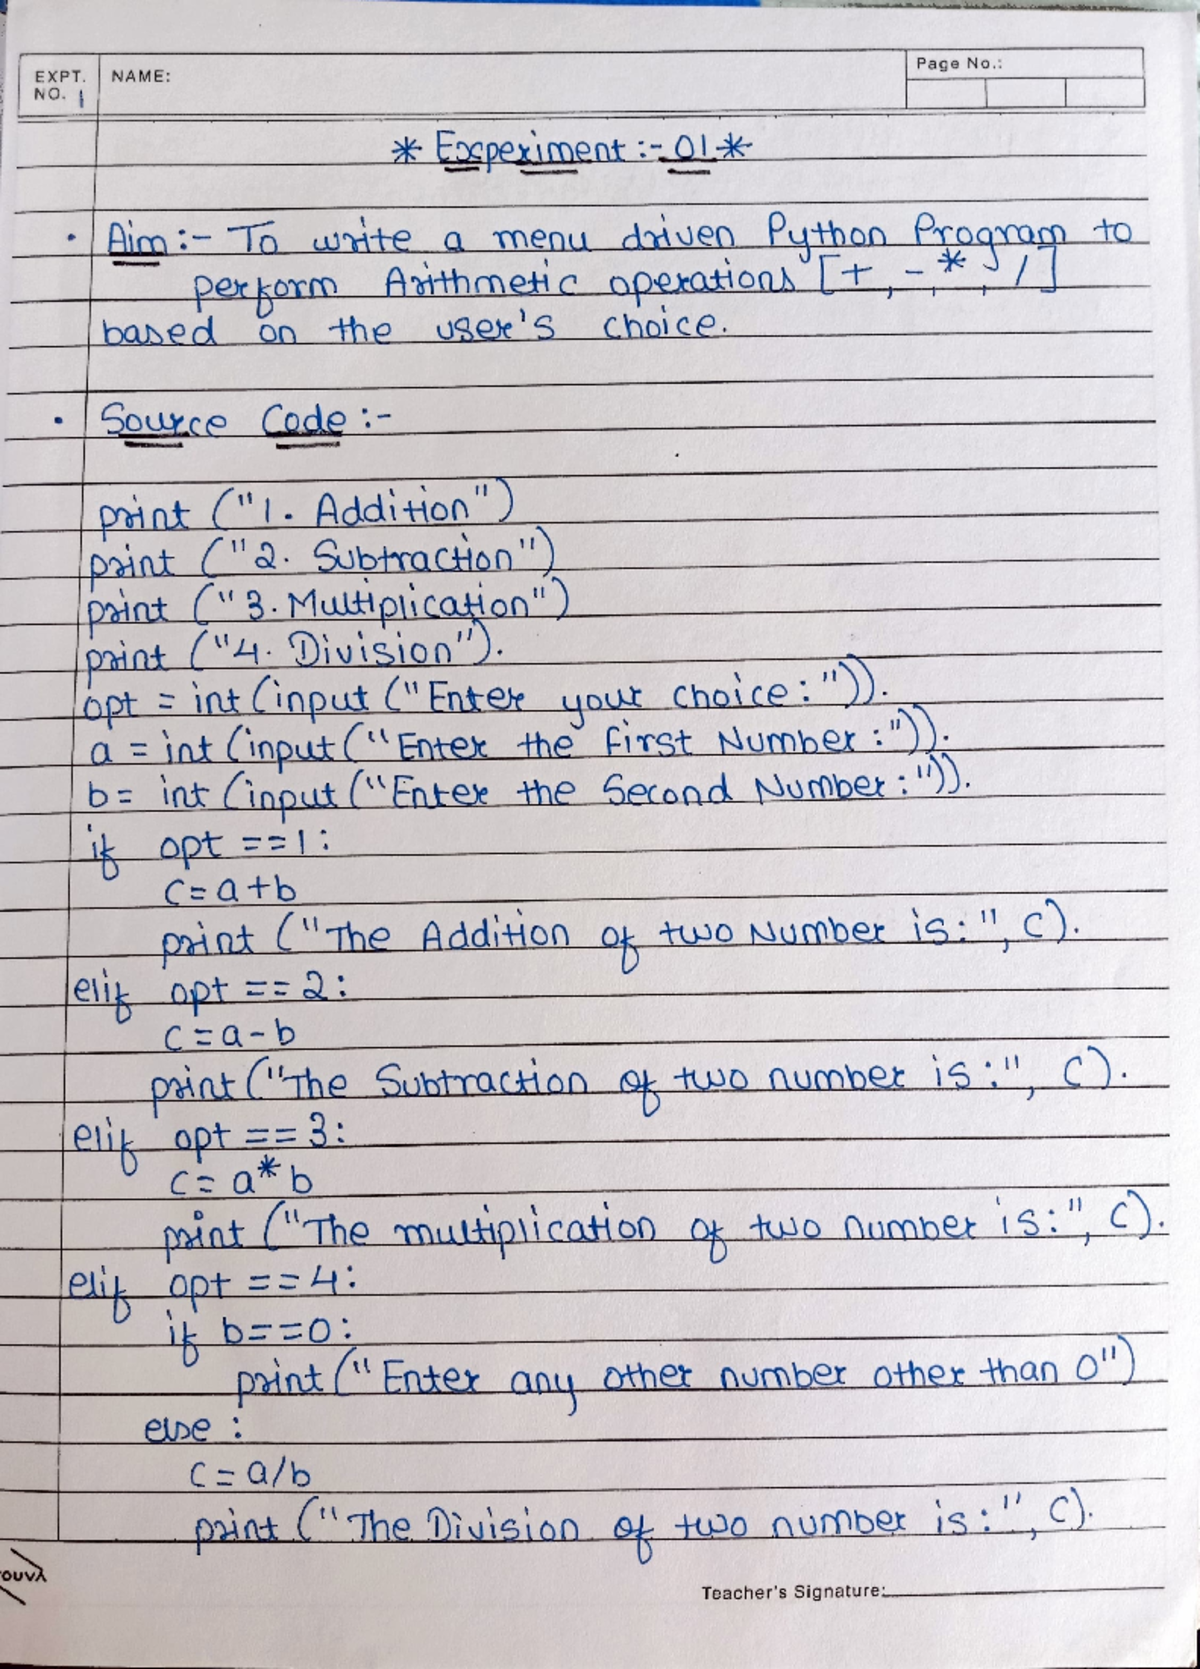 EXPT. NO. 1 NAME: Page No.:
* Experiment :- 01 *
• Aim :- To write a menu driven Python Program to
perform Arithmetic operations [+, -, *, /]
based on the user's choice.
• Source Code :-
print ("1. Addition")
print ("2. Subtraction")
print ("3. Multiplication")
print ("4. Division").
opt = int (input ("Enter your choice : ")).
a = int (input ("Enter the First Number : ")).
b = int (input ("Enter the Second Number : ")).
if opt == 1 :
c = a + b
print ("The Addition of two Number is : ", c).
elif opt == 2 :
c = a - b
print ("The Subtraction of two number is : ", c).
elif opt == 3 :
c = a * b
print ("The multiplication of two number is : ", c).
elif opt == 4 :
if b == 0 :
print ("Enter any other number other than 0")
else :
c = a/b
print ("The Division of two number is : ", c).
Teacher's Signature: